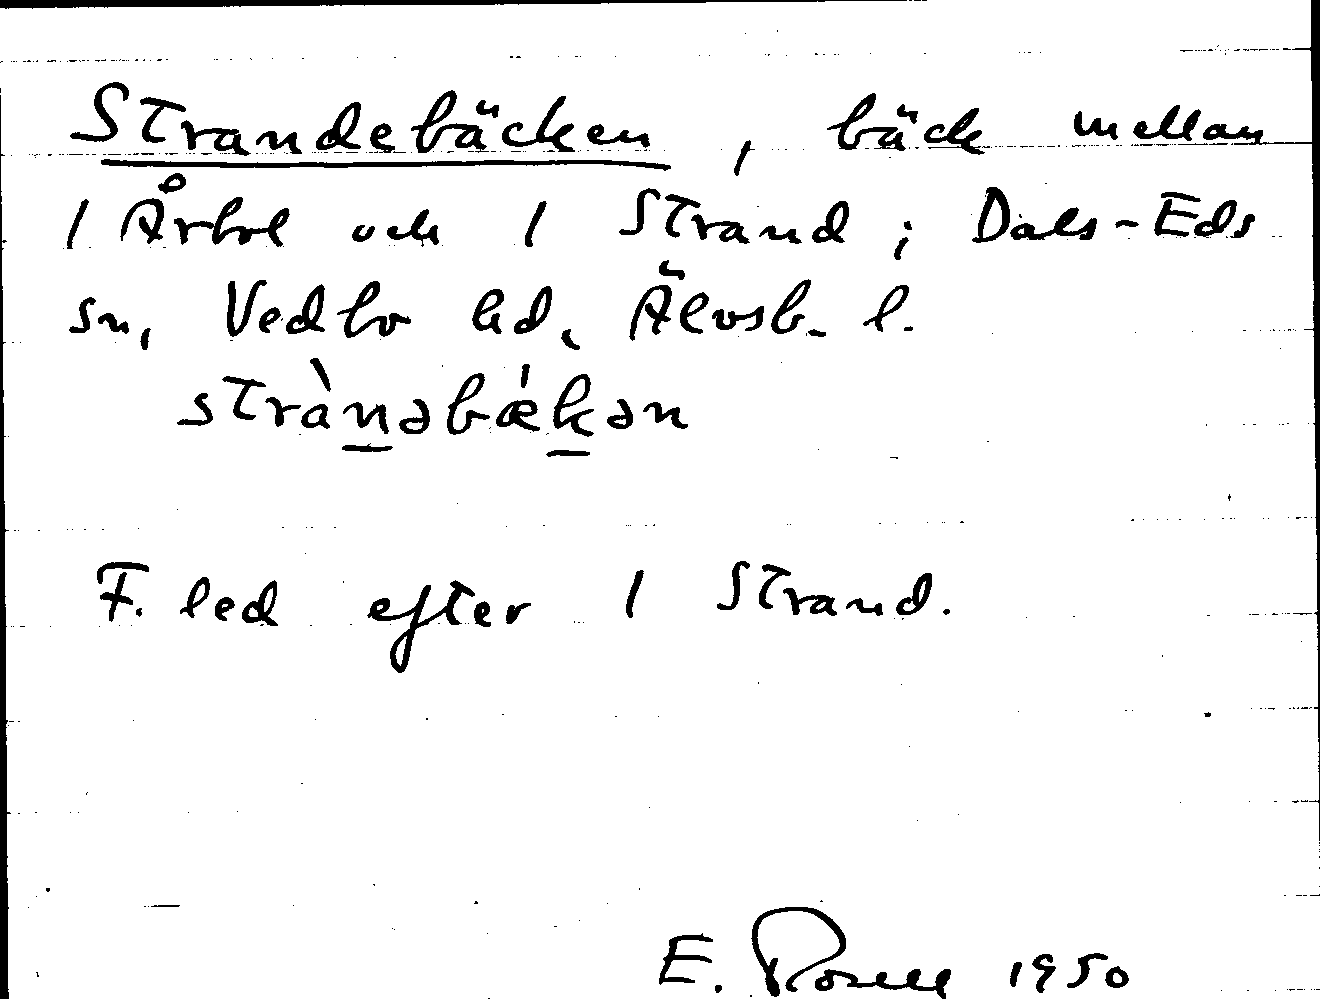 Strandebäcken, bäck mellan
1 Årbol och 1 Strand; Dals-Eds
sn, Vedbo hd, Älvsb. l.
stràn̲əbæ̍k̲ən
F. led efter 1 Strand.
E. Rosell 1950